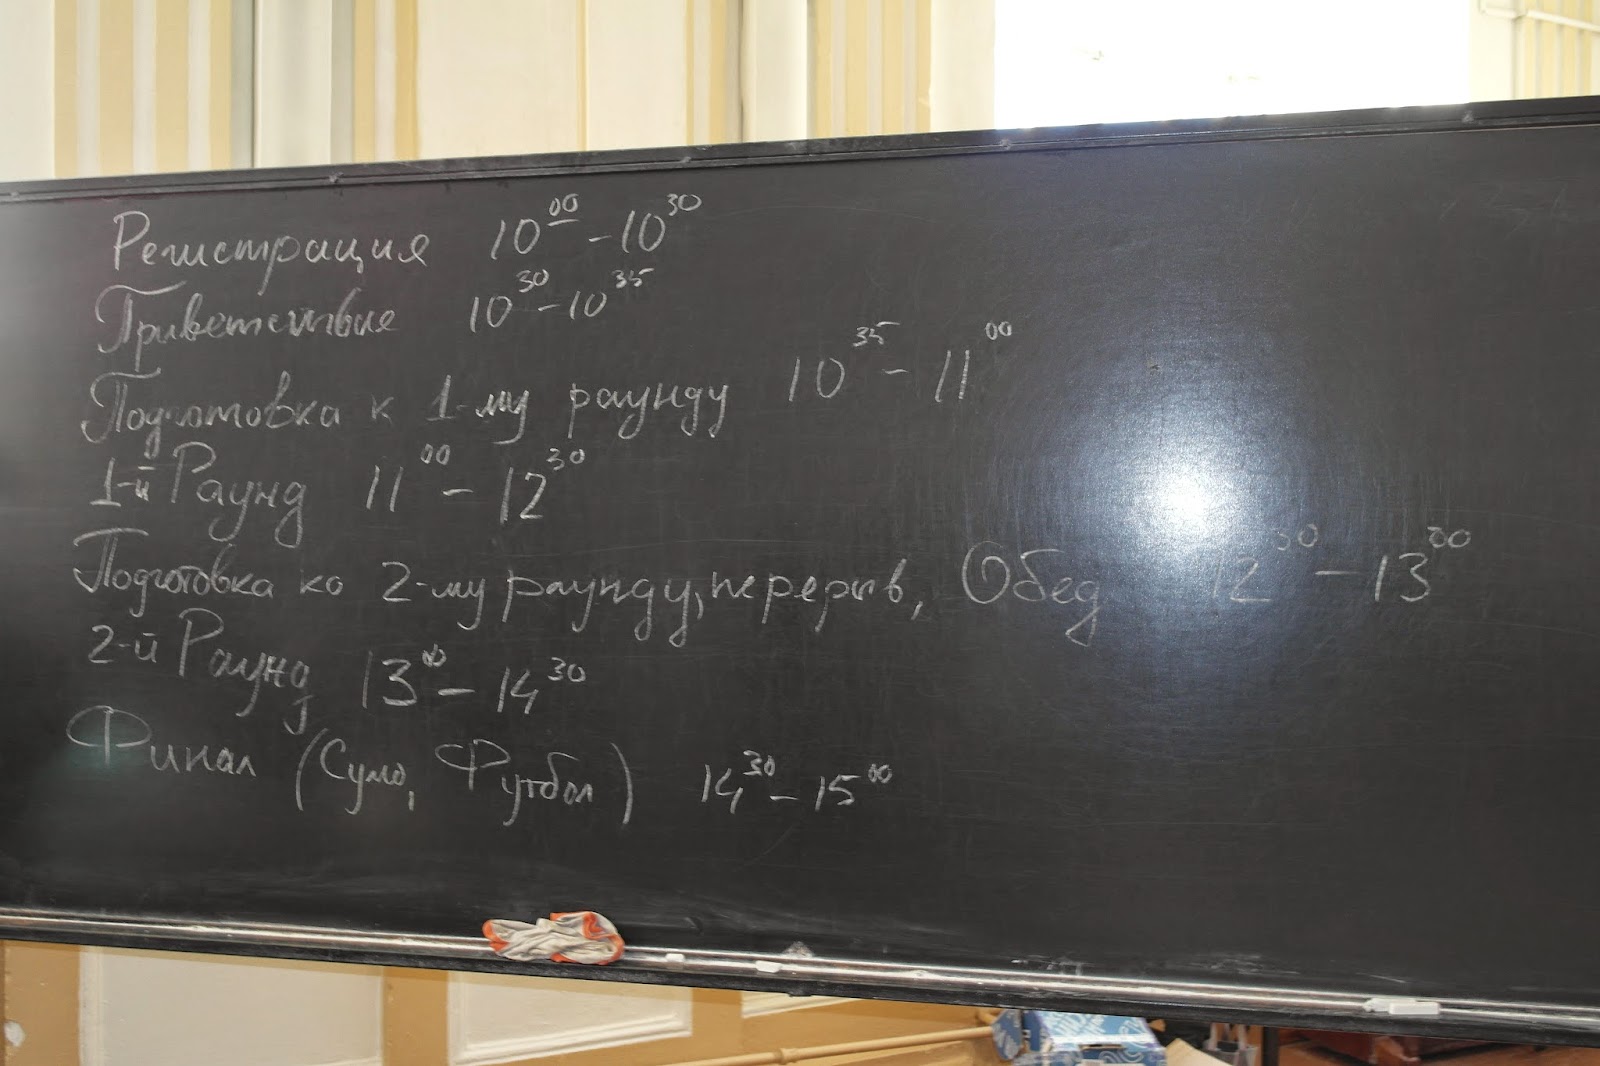 Регистрация 10⁰⁰ - 10³⁰
Приветствие 10³⁰ - 10³⁵
Подготовка к 1-му раунду 10³⁵ - 11⁰⁰
1-й Раунд 11⁰⁰ - 12³⁰
Подготовка ко 2-му раунду, перерыв, Обед 12³⁰ - 13⁰⁰
2-й Раунд 13⁰⁰ - 14³⁰
Финал (Сумо, Футбол) 14³⁰ - 15⁰⁰